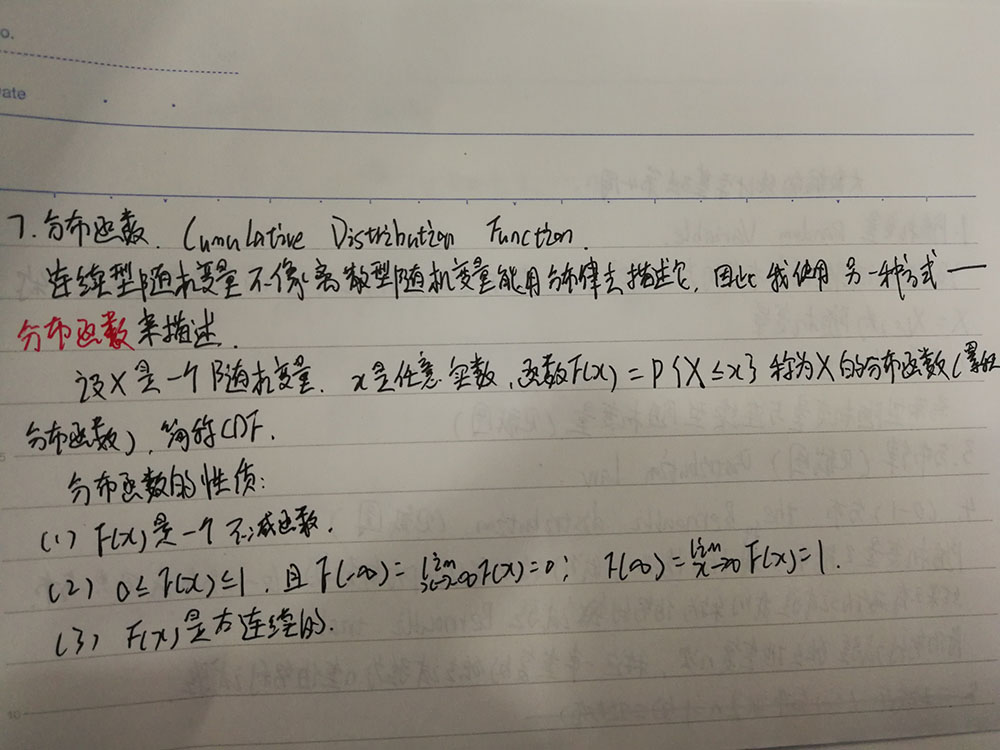 o.
ate
7. 分布函数. Cumulative Distribution Function.
连续型随机变量不像离散型随机变量能用分布律去描述它, 因此我使用另一种方式——
分布函数来描述.
设X是一个随机变量. x是任意实数, 函数F(x) = P{X≤x} 称为X的分布函数(累积
分布函数), 简称CDF.
分布函数的性质:
(1) F(x)是一个不减函数.
(2) 0≤F(x)≤1, 且 F(-∞) = lim x→-∞ F(x)=0; F(∞) = lim x→∞ F(x)=1.
(3) F(x)是右连续的.
10